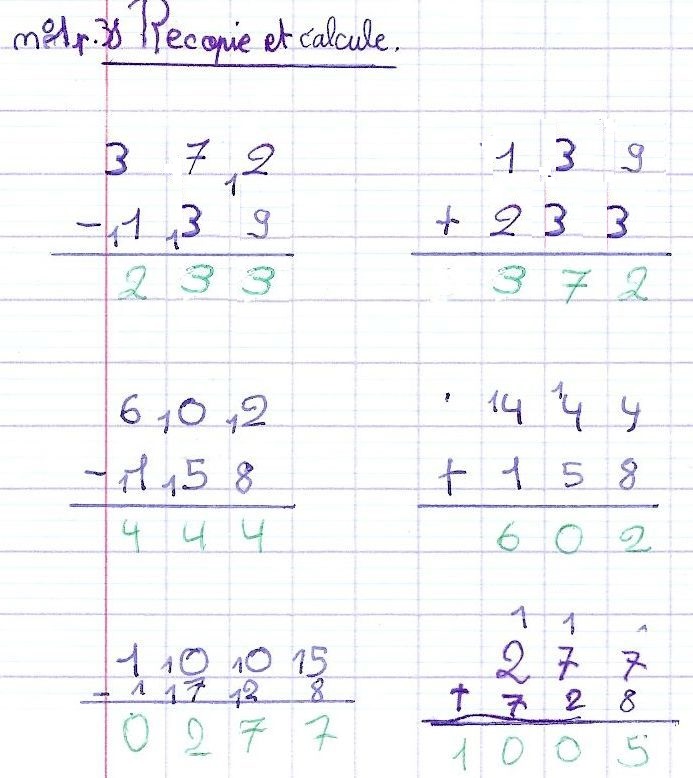 n°1 p.38 Recopie et calcule.
3 7 12
- 11 13 9
2 3 3
1 3 9
+ 2 3 3
3 7 2
6 10 12
- 11 15 8
4 4 4
14 14 4
+ 1 5 8
6 0 2
1 10 10 15
- 1 17 12 8
0 2 7 7
1 1
2 7 7
+ 7 2 8
1 0 0 5